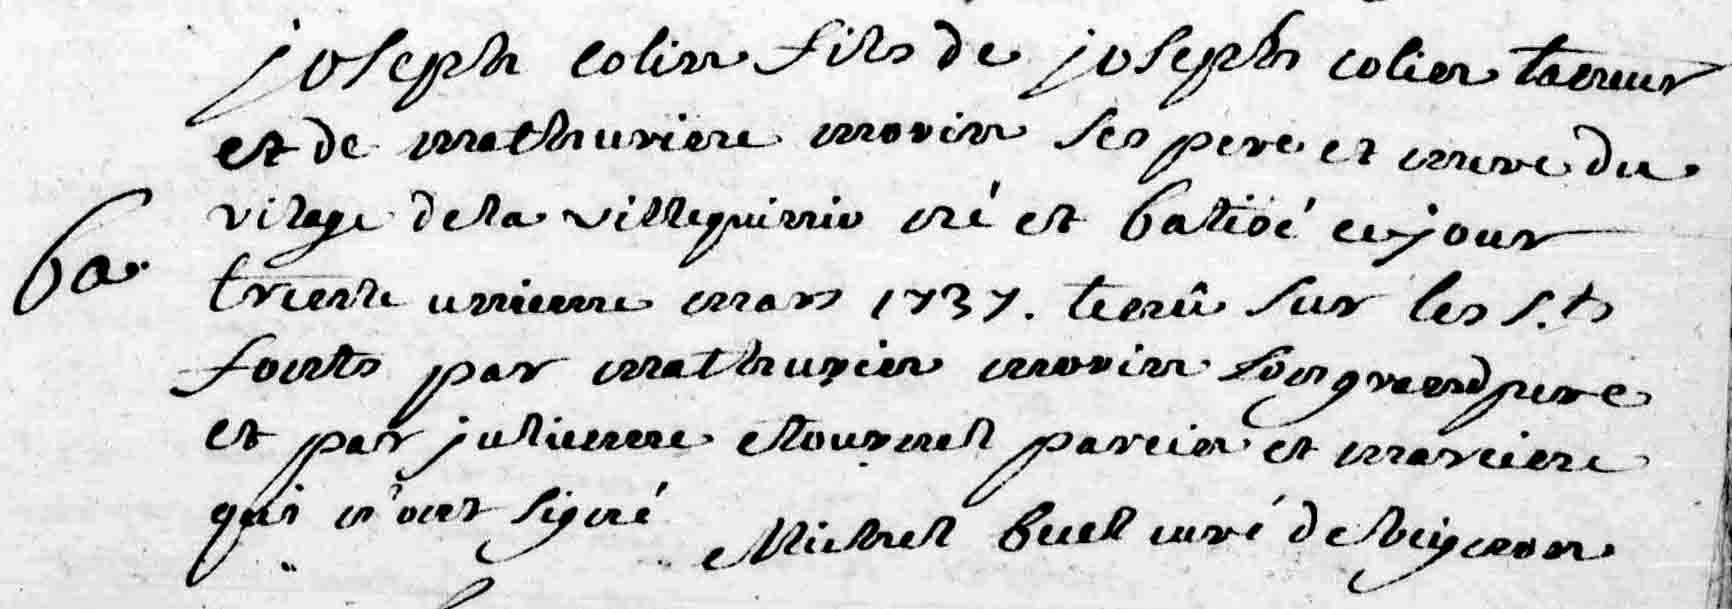 joseph colin fils de joseph colin taneur
et de mathurine morin ses pere et mere du
vilage de la villequinio né et batisé ce jour
ba.
trente unieme mars 1737. tenû sur les s.ts
fonts par mathurin morin son grand pere
et par julienne etournel parein et mareine
qui n'ont signé Michel buel curé de